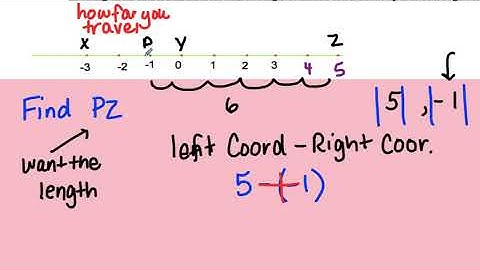 how far you
travel
X P Y Z
-3 -2 -1 0 1 2 3 4 5
6
Find PZ
want the
length
|5| , |-1|
left Coord - Right Coor.
5 - (-1)